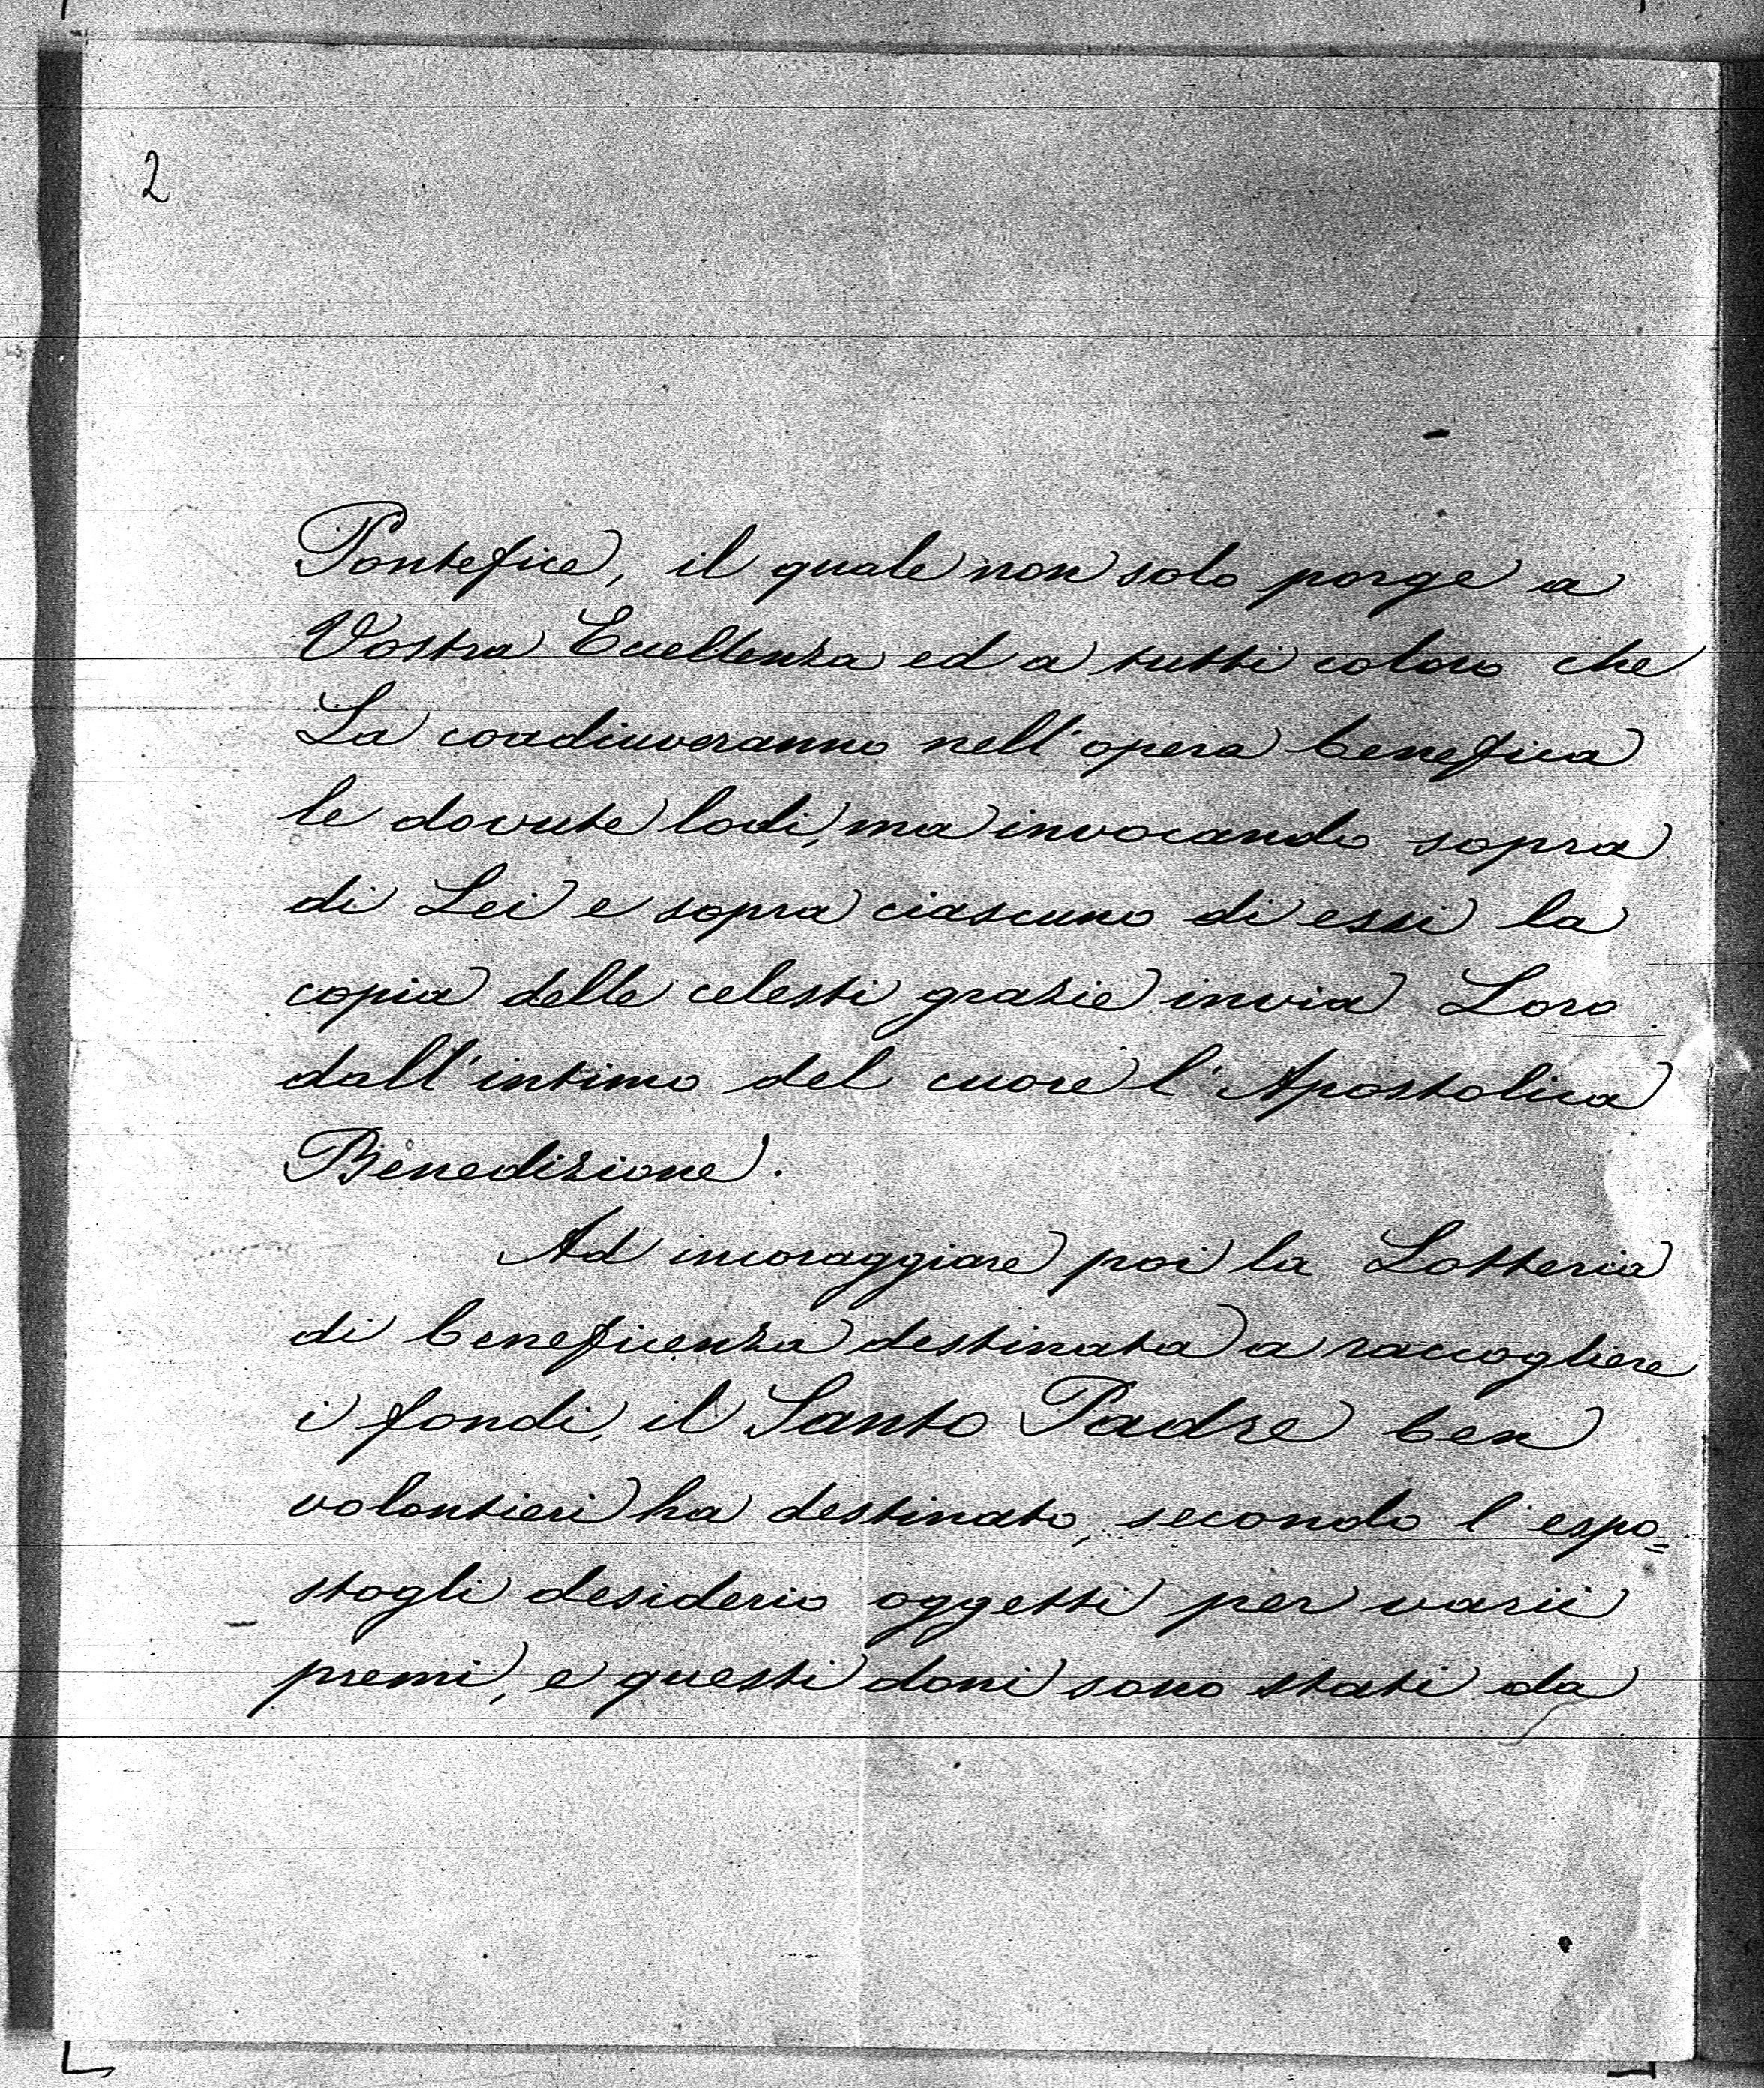 2
Pontefice, il quale non solo porge a
Vostra Eccellenza ed a tutti coloro che
La coadiuveranno nell'opera benefica
le dovute lodi, ma invocando sopra
di Lei e sopra ciascuno di essi la
copia delle celesti grazie invia Loro
dall'intimo del cuore l'Apostolica
Benedizione.
Ad incoraggiare poi la Lotteria
di beneficenza destinata a raccogliere
i fondi, il Santo Padre ben
volontieri ha destinato, secondo l'espo=
stogli desiderio oggetti per varii
premi, e questi doni sono stati da